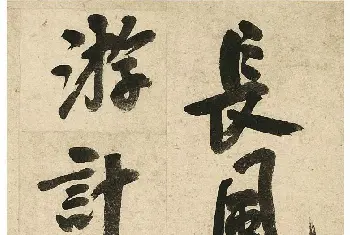 長風
游計